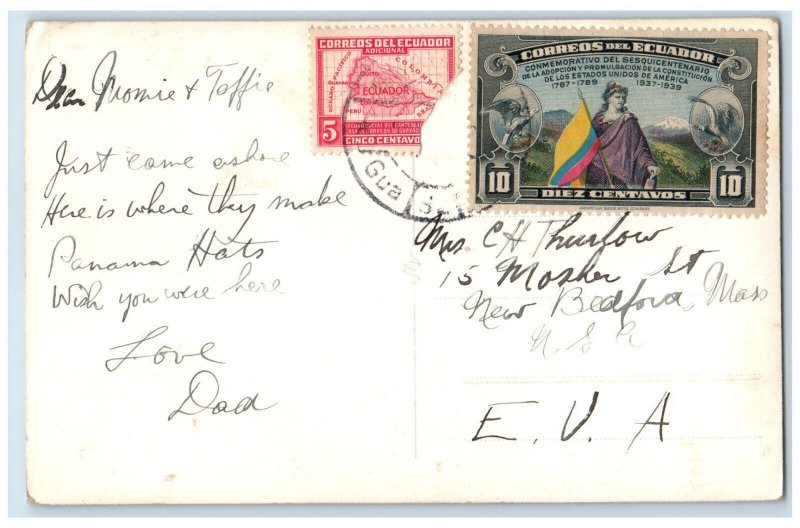 Dear Momie & Toffie
Just came ashore
Here is where they make
Panama Hats
Wish you were here
Love
Dad
CORREOS DEL ECUADOR
ADICIONAL
OCEANO PACIFICO
COLOMBIA
QUITO
GUAYAQUIL
ECUADOR
PERU
5
CASA DE CORREOS DE GUAYAQ
CINCO CENTAVO
CORREOS DEL ECUADOR
CONMEMORATIVO DEL SESQUICENTENARIO
DE LA ADOPCION Y PROMULGACION DE LA CONSTITUCION
DE LOS ESTADOS UNIDOS DE AMERICA
1787-1789 1937-1939
10 DIEZ CENTAVOS 10
AMERICAN BANK NOTE COMPANY
Gua
Mrs C H Thurlow
15 Mosher St
New Bedford, Mass
U.S.A
E. V. A